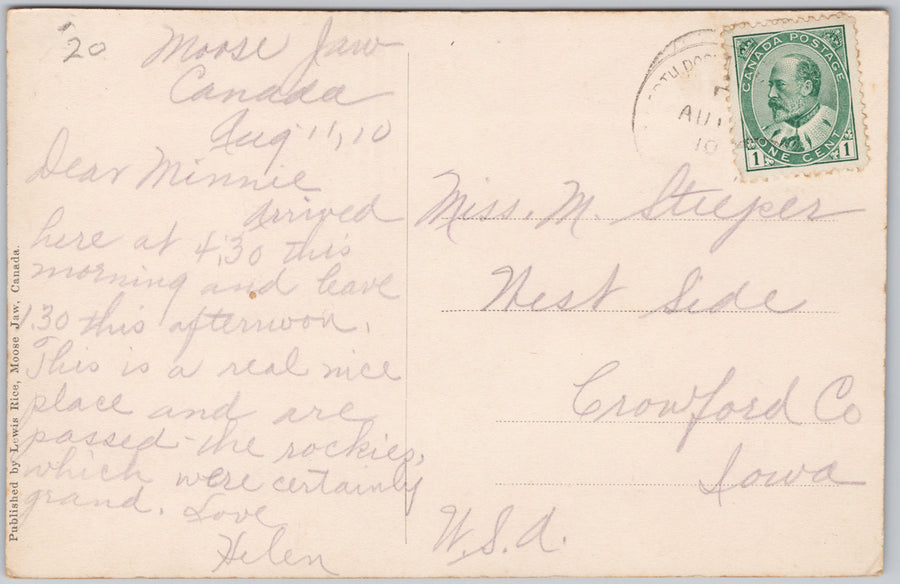 20
Moose Jaw
Canada
Aug 11, 10
Dear Minnie
Arrived
here at 4,30 this
morning and leave
1.30 this afternoon.
This is a real nice
place and are
passed the rockies,
which were certainly
grand. Love
Helen
Published by Lewis Rice, Moose Jaw, Canada.
CANADA POSTAGE
1 ONE CENT 1
AU
10
Miss. M. Steeper
West Side
Crowford Co
Iowa
U.S.A.